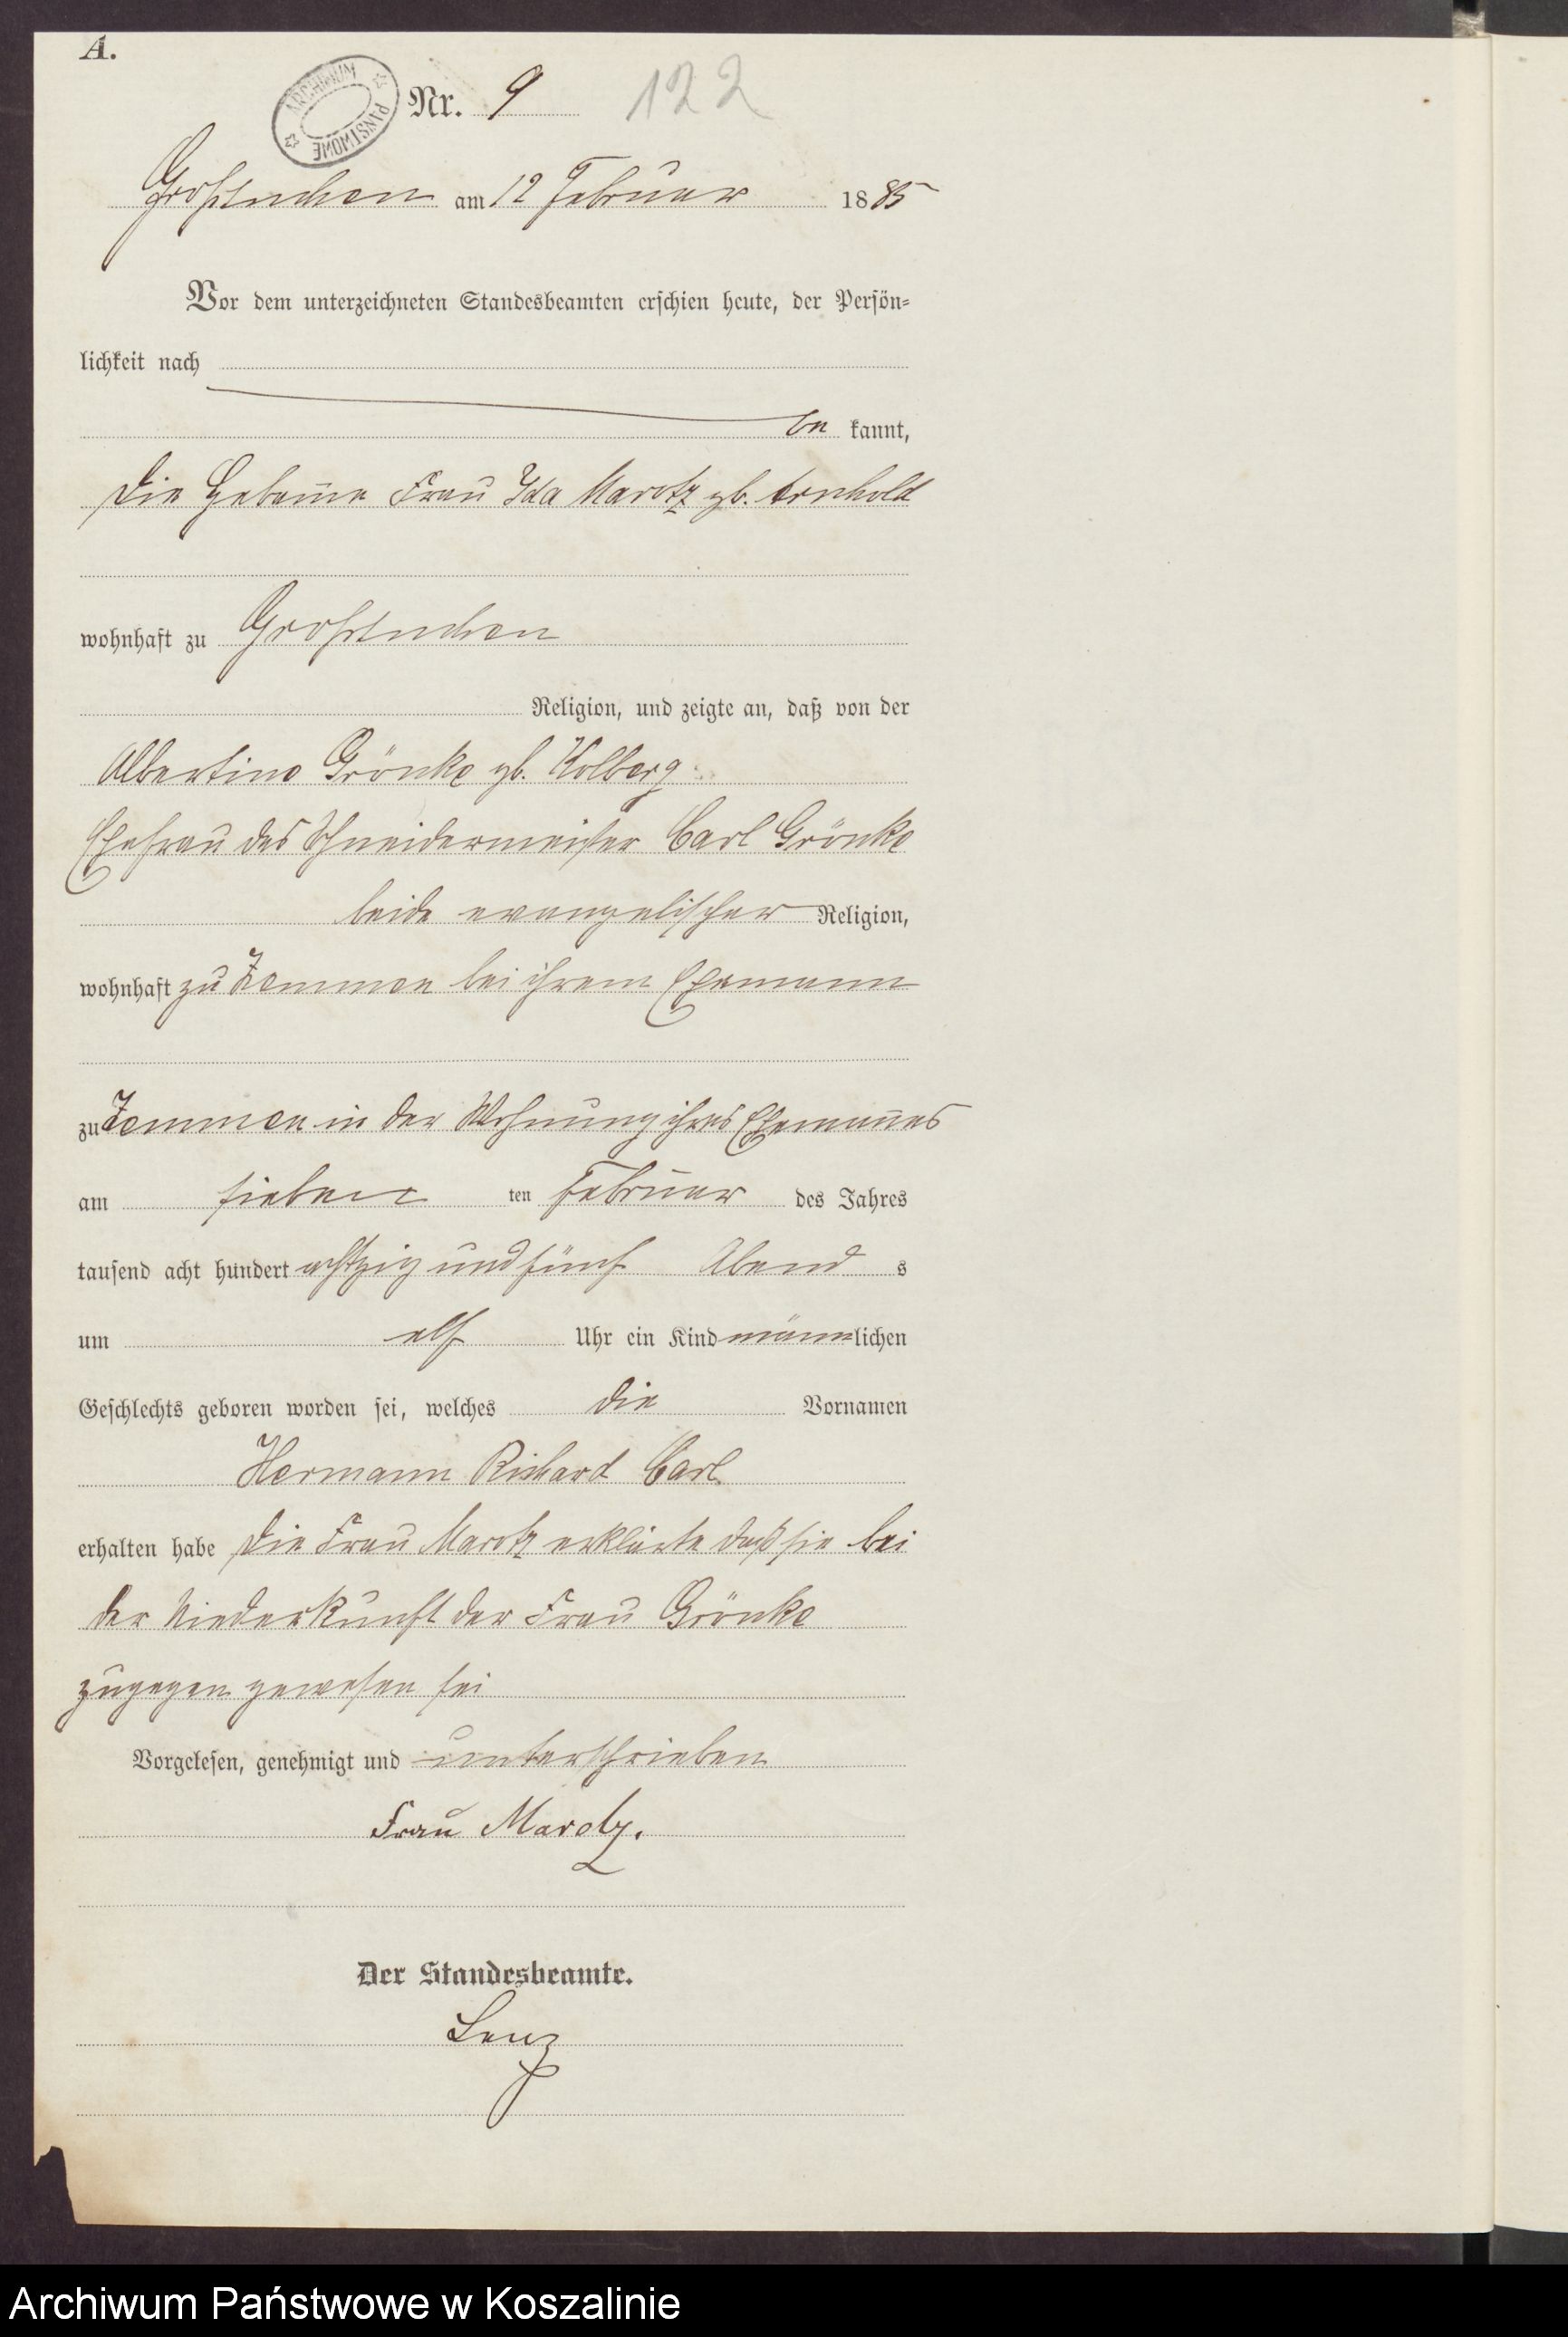 A.
ARCHIWUM PAŃSTWOWE
Nr. 9 122
Großtuchen am 12 Februar 1885
Vor dem unterzeichneten Standesbeamten erschien heute, der Persön-
lichkeit nach
be kannt,
die Hebame Frau Ida Marotz gb. Arnhold
wohnhaft zu Großtuchen
Religion, und zeigte an, daß von der
Albertine Grönke gb. Kolberg
Ehefrau des Schneidermeister Carl Grönke
beide evangelischer Religion,
wohnhaft zu Zemmen bei ihrem Ehemann
zu Zemmen in der Wohnung ihres Ehemanes
am sieben ten Februar des Jahres
tausend acht hundert achtzig und fünf Abend s
um elf Uhr ein Kind männlichen
Geschlechts geboren worden sei, welches die Vornamen
Hermann Richard Carl
erhalten habe die Frau Marotz erklärte daß sie bei
der Niederkunft der Frau Grönke
zugegen gewesen sei
Vorgelesen, genehmigt und unterschrieben
Frau Marotz.
Der Standesbeamte.
Lenz
Archiwum Państwowe w Koszalinie